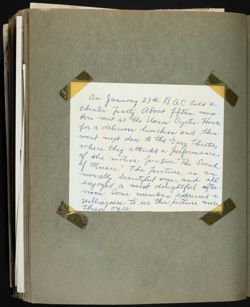 On January 27th B.A.C. held a
theater party. About fifteen mem-
bers met at the Union Oyster House
for a delicious luncheon and then
went next door to the Gary Theatre,
where they attended a performance
of the motion picture "The Sound
of Music." The picture is an
unusually beautiful one and all
enjoyed a most delightful after-
noon. Some members expressed a
willingness to see this picture more
than once.